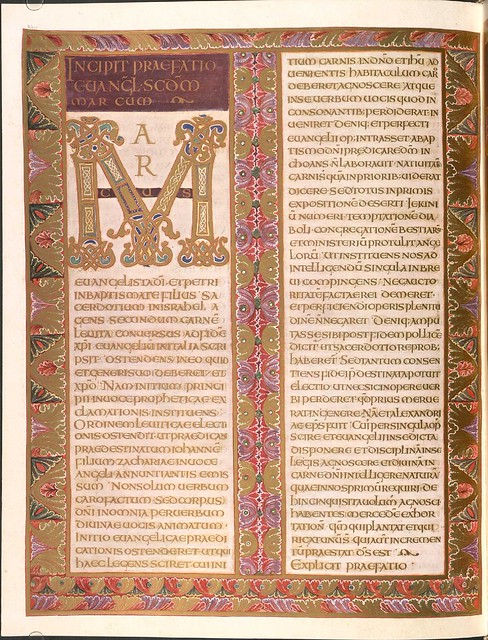 INCIPIT PRAEFATIO
EUANGL SCDM
MARCUM
MAR
CUS
EUANGELISTA DI ET PETRI
IN BAPTISMATE FILIUS SA
CERDOTUM IN ISRAHEL A
GENS SECUNDUM CARNE
LEUITA CONUERSUS AD FIDE
XPI EUANGELIU IN ITALIA SCRI
PSIT OSTENDENS IN EO QUID
ET GENERI SUO DEBERET ET
XPO NAM INITIUM PRINCI
PII IN UOCE PROPHETICAE EX
CLAMATIONIS INSTITUENS
ORDINEM LEUITICAE ELECTI
ONIS OSTENDIT UT PRAEDICANS
PRAEDESTINATUM IOHANNE
FILIUM ZACHARIAE IN UOCE
ANGELI ANNUNTIANTIS EMIS
SUM NON SOLUM UERBUM
CARO FACTUM SED CORPUS
DNI IN OMNIA PER UERBUM
DIUINAE UOCIS ANIMATUM
INITIO EUANGELICAE PRAEDI
CATIONIS OSTENDERET UT QUI
HAEC LEGENS SCIRET CUI INI
TIUM CARNIS IN DNO ET IHU AD
UENIENTIS HABITACULUM CAR
DEBERET AGNOSCERE ATQUE
IN SE UERBUM UOCIS QUOD IN
CONSONANTIB PERDIDERAT IN
UENIRET DENIQ ET PERFECTI
EUANGELII OP INTRASSET A BAP
TISMO DNI PREDICARE DM IN
CHOANS N LABORAUIT NATIUITA
CARNIS QUA IN PRIORIB UIDERAT
DICERE SED TOTUS IN PRIMIS
EXPOSITIONE DESERTI IEIUNI
U NUMERI TEMPTATIONE DIA
BOLI CONGREGATIONE BESTIAR
ET MINISTERIU PROTULIT ANGE
LORU UT INSTITUENS NOS AD
INTELLEGENDU SINGULA IN BRE
UI COMPINGENS NEC AUCTO
RITATE FACTAE REI DEMERET
ET PERFICIENDI OPERIS PLENITU
DINE N NEGARET DENIQ AMPU
TASSE SIBI POST FIDEM POLLICE
DICIT UT SACERDOTIO REPROB
HABERET SED TANTUM CONSEN
TIENS FIDEI PDESTINATA POTUIT
ELECTIO UT NEC SIC IN OPERE UER
BI PERDERET QD PRIUS MERUE
RAT IN GENERE NA ET ALEXANDRI
AE EPS FUIT CUI PER SINGULA OP
SCIRE ET EUANGELII IN SE DICTA
DISPONERE ET DISCIPLINA IN SE
LEGIS AGNOSCERE ET DIUINA IN
CARNE DNI INTELLIGERE NATURA
QUAE IN NOS PRIMU REQUIRI DE
HINC INQUISITA UOLUM AGNOSCI
HABENTES MERCEDE EXHOR
TATION QM QUI PLANTAT ET QUI
RIGAT UNUS QUI AUT INCREMEN
TU PRAESTAT DS EST
EXPLICIT PRAEFATIO